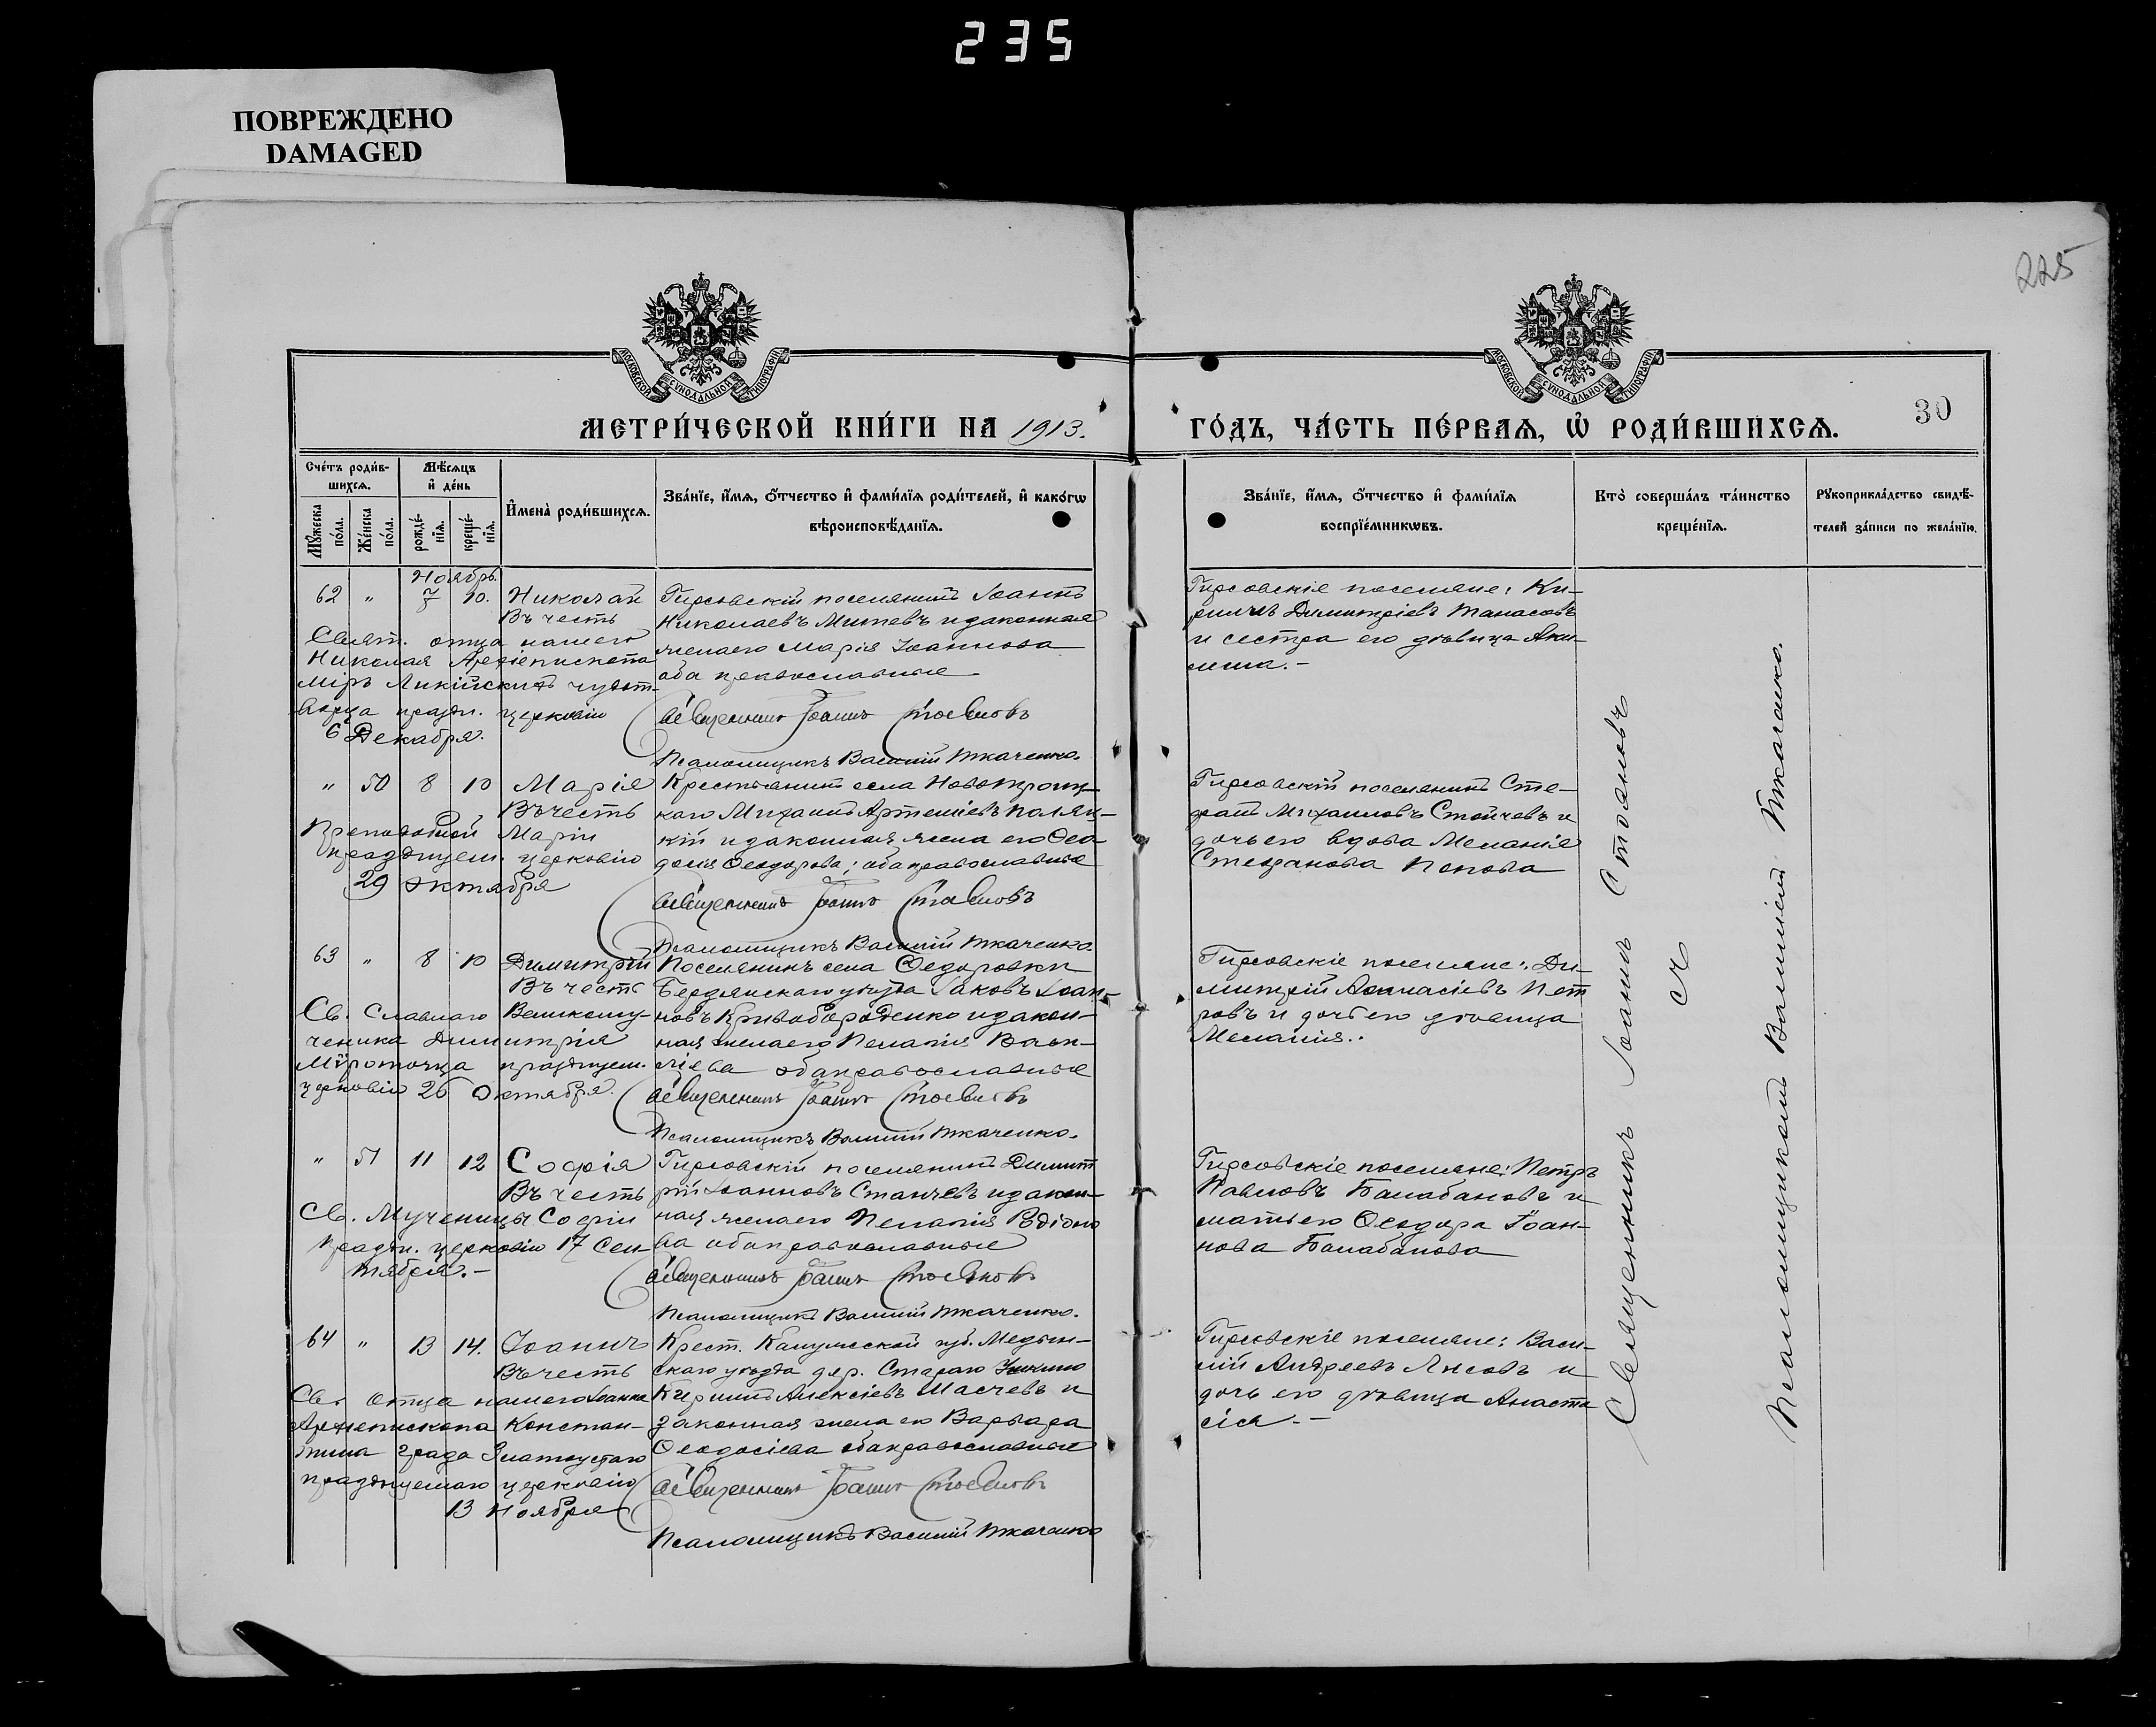 235
ПОВРЕЖДЕНО
DAMAGED
225
МОСКОВСКОЙ СѴНОДАЛЬНОЙ ТИПОГРАФІИ
МОСКОВСКОЙ СѴНОДАЛЬНОЙ ТИПОГРАФІИ
МЕТРИ́ЧЕСКОЙ КНИ́ГИ НА 1913.
ГО́ДЪ, ЧА́СТЬ ПЕ́РВАѦ, Ѡ҆ РОДИ́ВШИХСѦ.
30
Сче́тъ роди́в-
шихсѧ.
Мꙋ́жеска по́ла.
Же́нска по́ла.
Мѣ́сѧцъ
и҆ де́нь
рожде́-
нїѧ.
креще́-
нїѧ.
И҆мена̀ роди́вшихсѧ.
Зва́нїе, и҆́мѧ, ѻ҆́тчество и҆ фами́лїѧ роди́телей, и҆ како́гѡ
вѣроисповѣ́данїѧ.
Зва́нїе, и҆́мѧ, ѻ҆́тчество и҆ фами́лїѧ
воспрїе́мникѡвъ.
Кто̀ соверша́лъ та́инство
креще́нїѧ.
Рꙋкоприкла́дство свидѣ́-
телей за́писи по жела́нїю.
Ноябрь.
62 " 7 10. Николай
Въ честь
Свят. отца нашего
Николая Архіепископа
Мѵръ Ликійскихъ чудот-
ворца праздн. церковію
6 Декабря.
Гирсовскій поселянинъ Іоаннъ
Николаевъ Митевъ и законная
жена его Марія Іоаннова
оба православные
Священникъ Іоаннъ Стояновъ
Псаломщикъ Василій Ткаченко.
Гирсовскіе поселяне: Ки-
риллъ Димитріевъ Танасовъ
и сестра его дѣвица
" 50 8 10 Марія
Въ честь
Преподобной Маріи
празднуем. церковію
29 октября
Крестьянинъ села Новотроиц-
каго Михаилъ Артеміевъ Полян-
кій и законная жена его Ѳео-
досія Ѳеодорова; оба православные
Священникъ Іоаннъ Стояновъ
Псаломщикъ Василій Ткаченко.
Гирсовскій поселянинъ Сте-
фанъ Михаиловъ Стойчевъ и
дочь его вдова Меланія
Стефанова Попова
63 " 8 10 Димитрій
Въ честь
Св. Славнаго Великому-
ченика Димитрія
Мѵроточца празднуем.
церковію 26 Октября.
Поселянинъ села Ѳедоровки
Бердянскаго уѣзда Іаковъ Іоан-
новъ Кривобороденко и закон-
ная жена его Пелагія Васи-
ліева оба православные
Священникъ Іоаннъ Стояновъ
Псаломщикъ Василій Ткаченко.
Гирсовскіе поселяне: Ди-
митрій Аѳанасіевъ Пет
ровъ и дочь его дѣвица
Меланія.
" 51 11 12 Софія
Въ честь
Св. Мученицы Софіи
праздн. церковію 17 Сен-
тября.-
Гирсовскій поселянинъ Димит
рій Іоанновъ Станчевъ и закон-
ная жена его Пелагія Родіоно
ва оба православные
Священникъ Іоаннъ Стояновъ
Псаломщикъ Василій Ткаченко.
Гирсовскіе поселяне: Петръ
Павловъ Балабановъ и
мать его Ѳеодора Іоан-
нова Балабанова
64 " 13 14. Іоаннъ
Въ честь
Св. отца нашего Іоанна
Архіепископа Констан-
тина града Златоустаго
празднуемаго церковію
13 Ноября
Крест. Калужской губ. Медын-
скаго уѣзда дер. Стараго
Кириллъ Алексіевъ Масчевъ и
законная жена его Варвара
Ѳеодосіева оба православные
Священникъ Іоаннъ Стояновъ
Псаломщикъ Василій Ткаченко
Гирсовскіе поселяне: Васи-
лій Андреевъ Лисовъ и
дочь его дѣвица Анаста
сія.-
Священникъ Іоаннъ Стояновъ
съ
Псаломщикомъ Василіемъ Ткаченко.